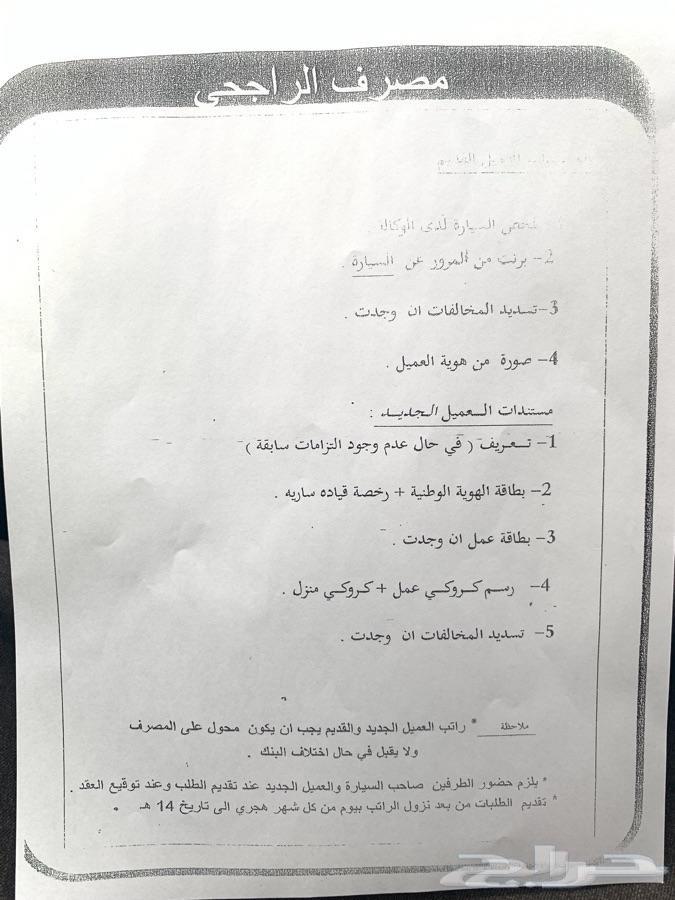 مصرف الراجحي
العميل القديم
فحص السيارة لدى الوكالة .
2- برنت من المرور عن السيارة .
3-تسديد المخالفات ان وجدت .
4- صورة من هوية العميل .
مستندات العميل الجديد :
1- تعريف ( في حال عدم وجود التزامات سابقة )
2- بطاقة الهوية الوطنية + رخصة قياده ساريه .
3- بطاقة عمل ان وجدت .
4- رسم كروكي عمل + كروكي منزل .
5- تسديد المخالفات ان وجدت .
ملاحظة * راتب العميل الجديد والقديم يجب ان يكون محول على المصرف
ولا يقبل في حال اختلاف البنك .
* يلزم حضور الطرفين صاحب السيارة والعميل الجديد عند تقديم الطلب وعند توقيع العقد .
* تقديم الطلبات من بعد نزول الراتب بيوم من كل شهر هجري الى تاريخ 14 هـ .
حراج